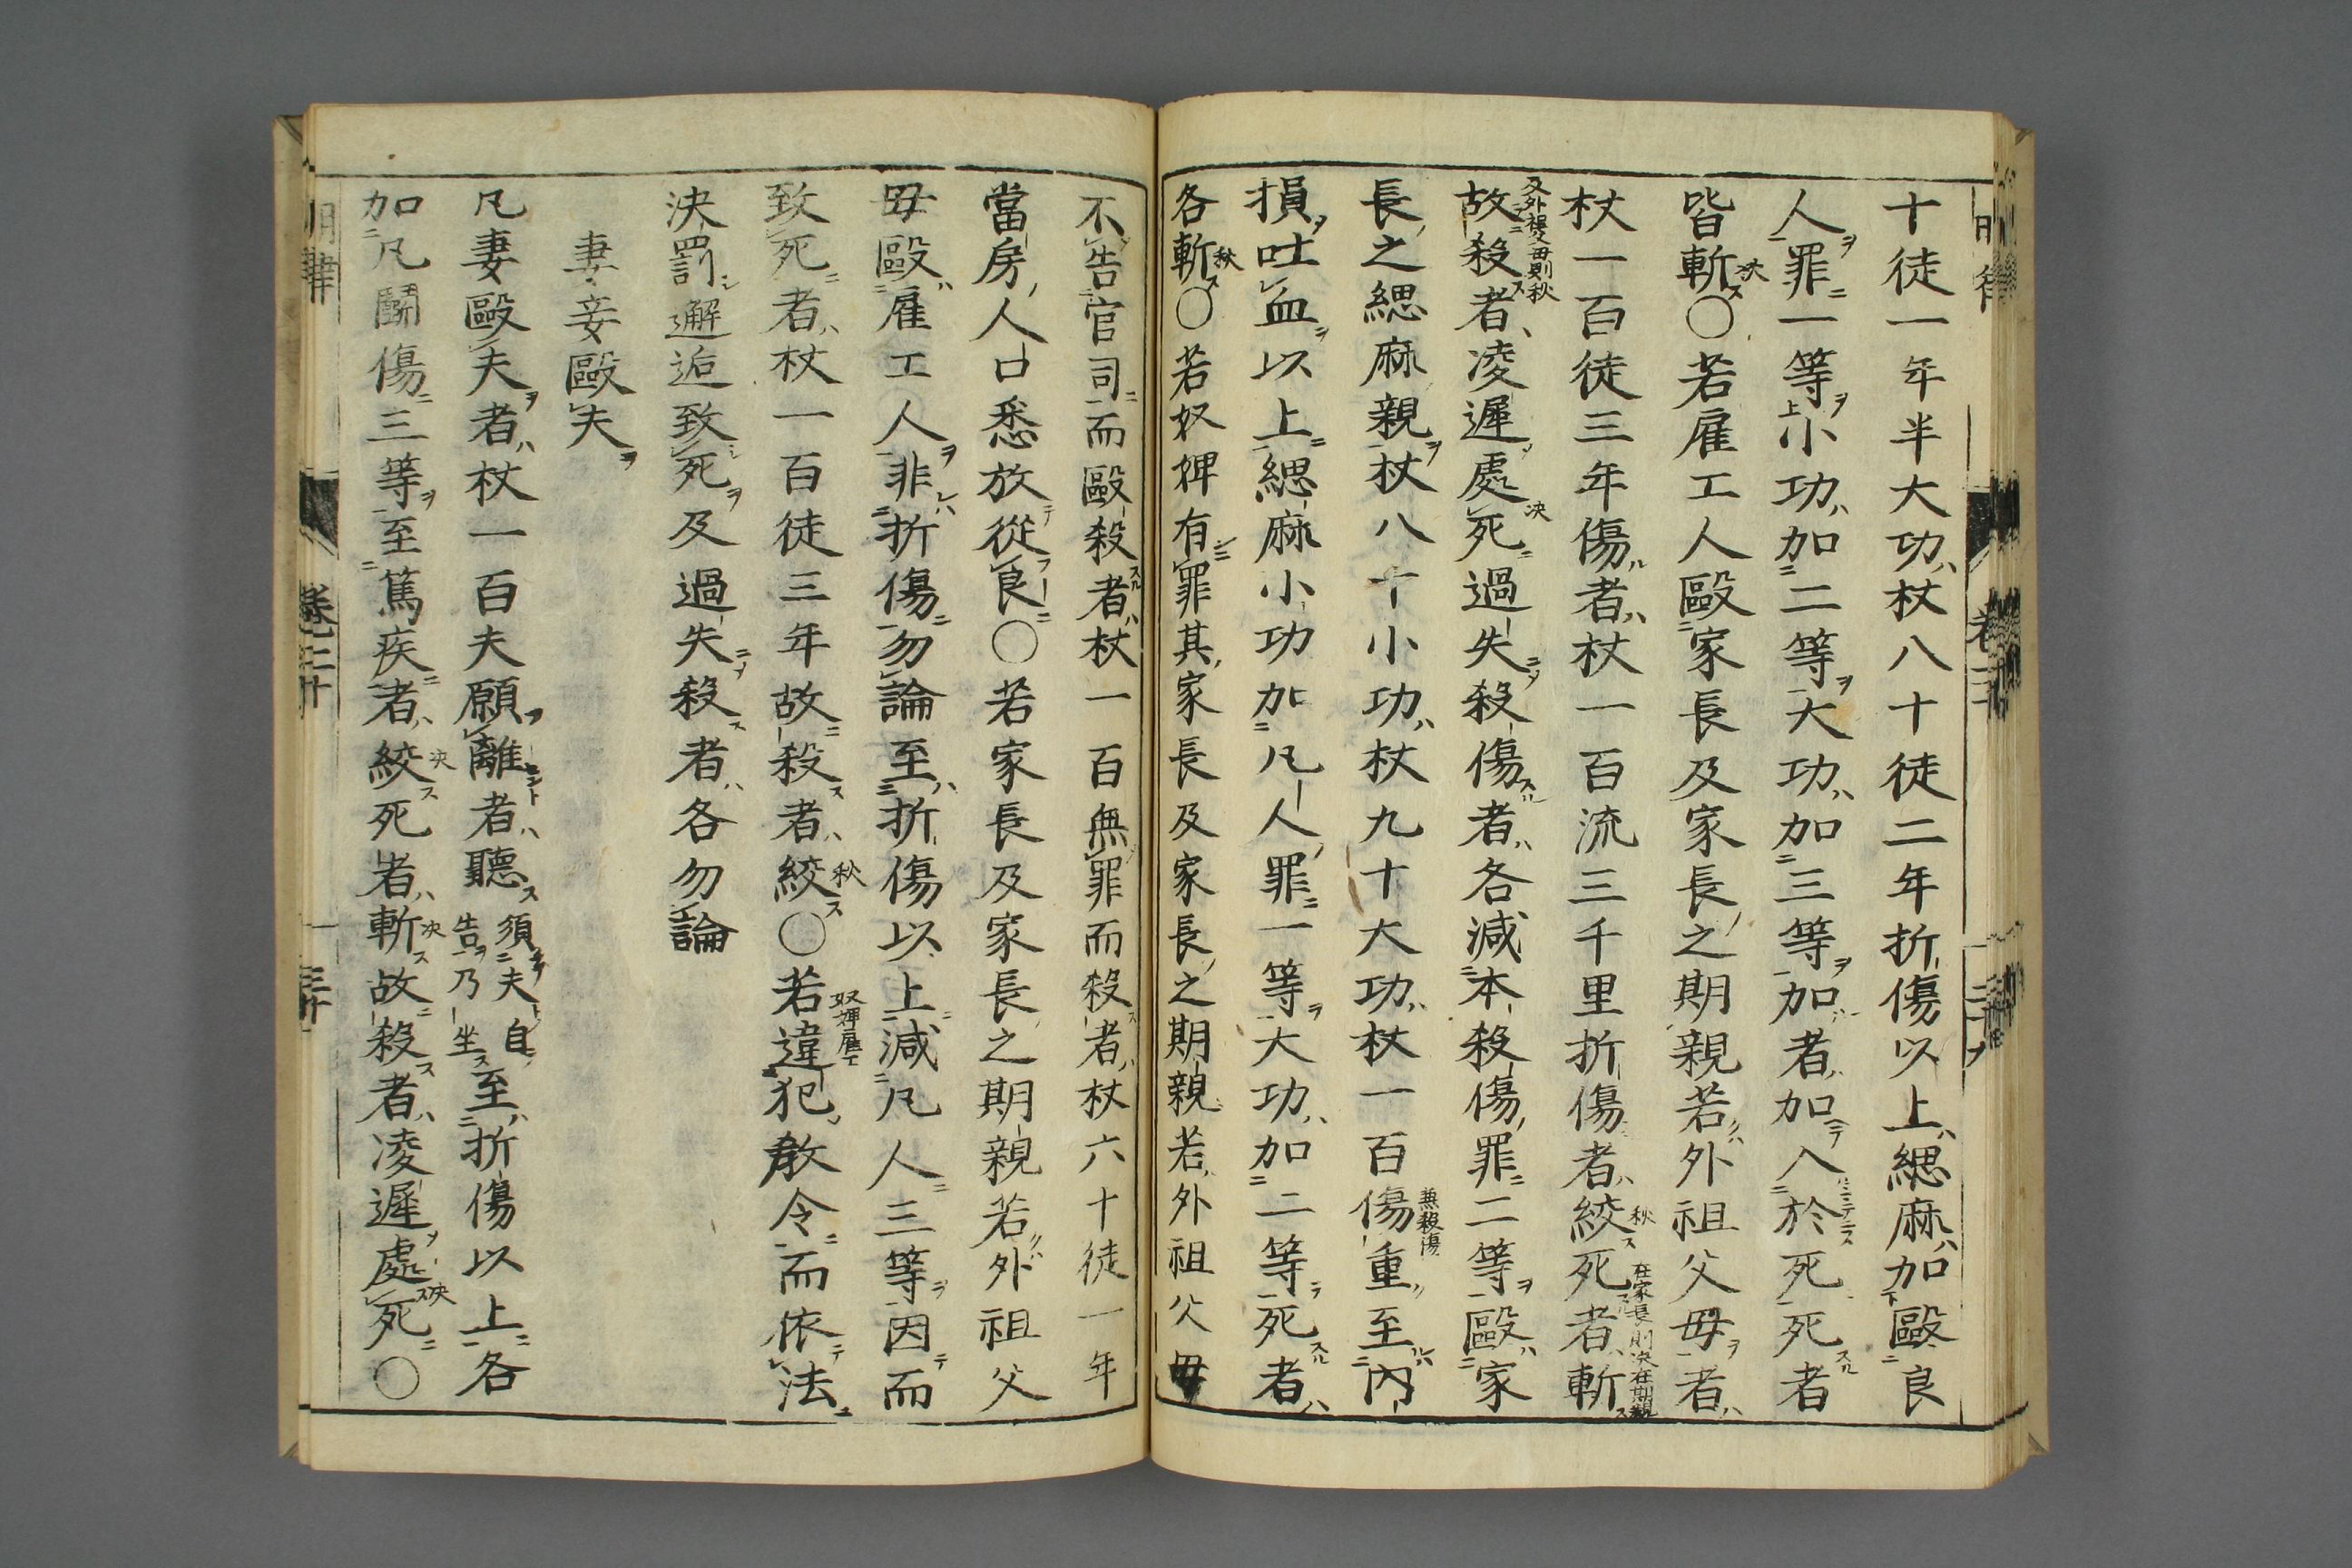 十徒一年半大功杖八十徒二年折傷以上緦麻加毆良
人罪一等小功加二等大功加三等加者加入於死死者
皆斬〇若雇工人毆家長及家長之期親若外祖父母者
杖一百徒三年傷者杖一百流三千里折傷者絞死者斬
故殺者凌遲處死過失殺傷者各減本殺傷罪二等毆家
長之緦麻親杖八十小功杖九十大功杖一百傷重至內
損吐血以上緦麻小功加凡人罪一等大功加二等死者
各斬〇若奴婢有罪其家長及家長之期親若外祖父母
不告官司而毆殺者杖一百無罪而殺者杖六十徒一年
當房人口悉放從良〇若家長及家長之期親若外祖父
母毆雇工人非折傷勿論至折傷以上減凡人三等因而
致死者杖一百徒三年故殺者絞〇若違犯教令而依法
決罰邂逅致死及過失殺者各勿論
妻妾毆夫
凡妻毆夫者杖一百夫願離者聽須夫自告乃坐至折傷以上各
加凡鬭傷三等至篤疾者絞死者斬故殺者凌遲處死〇